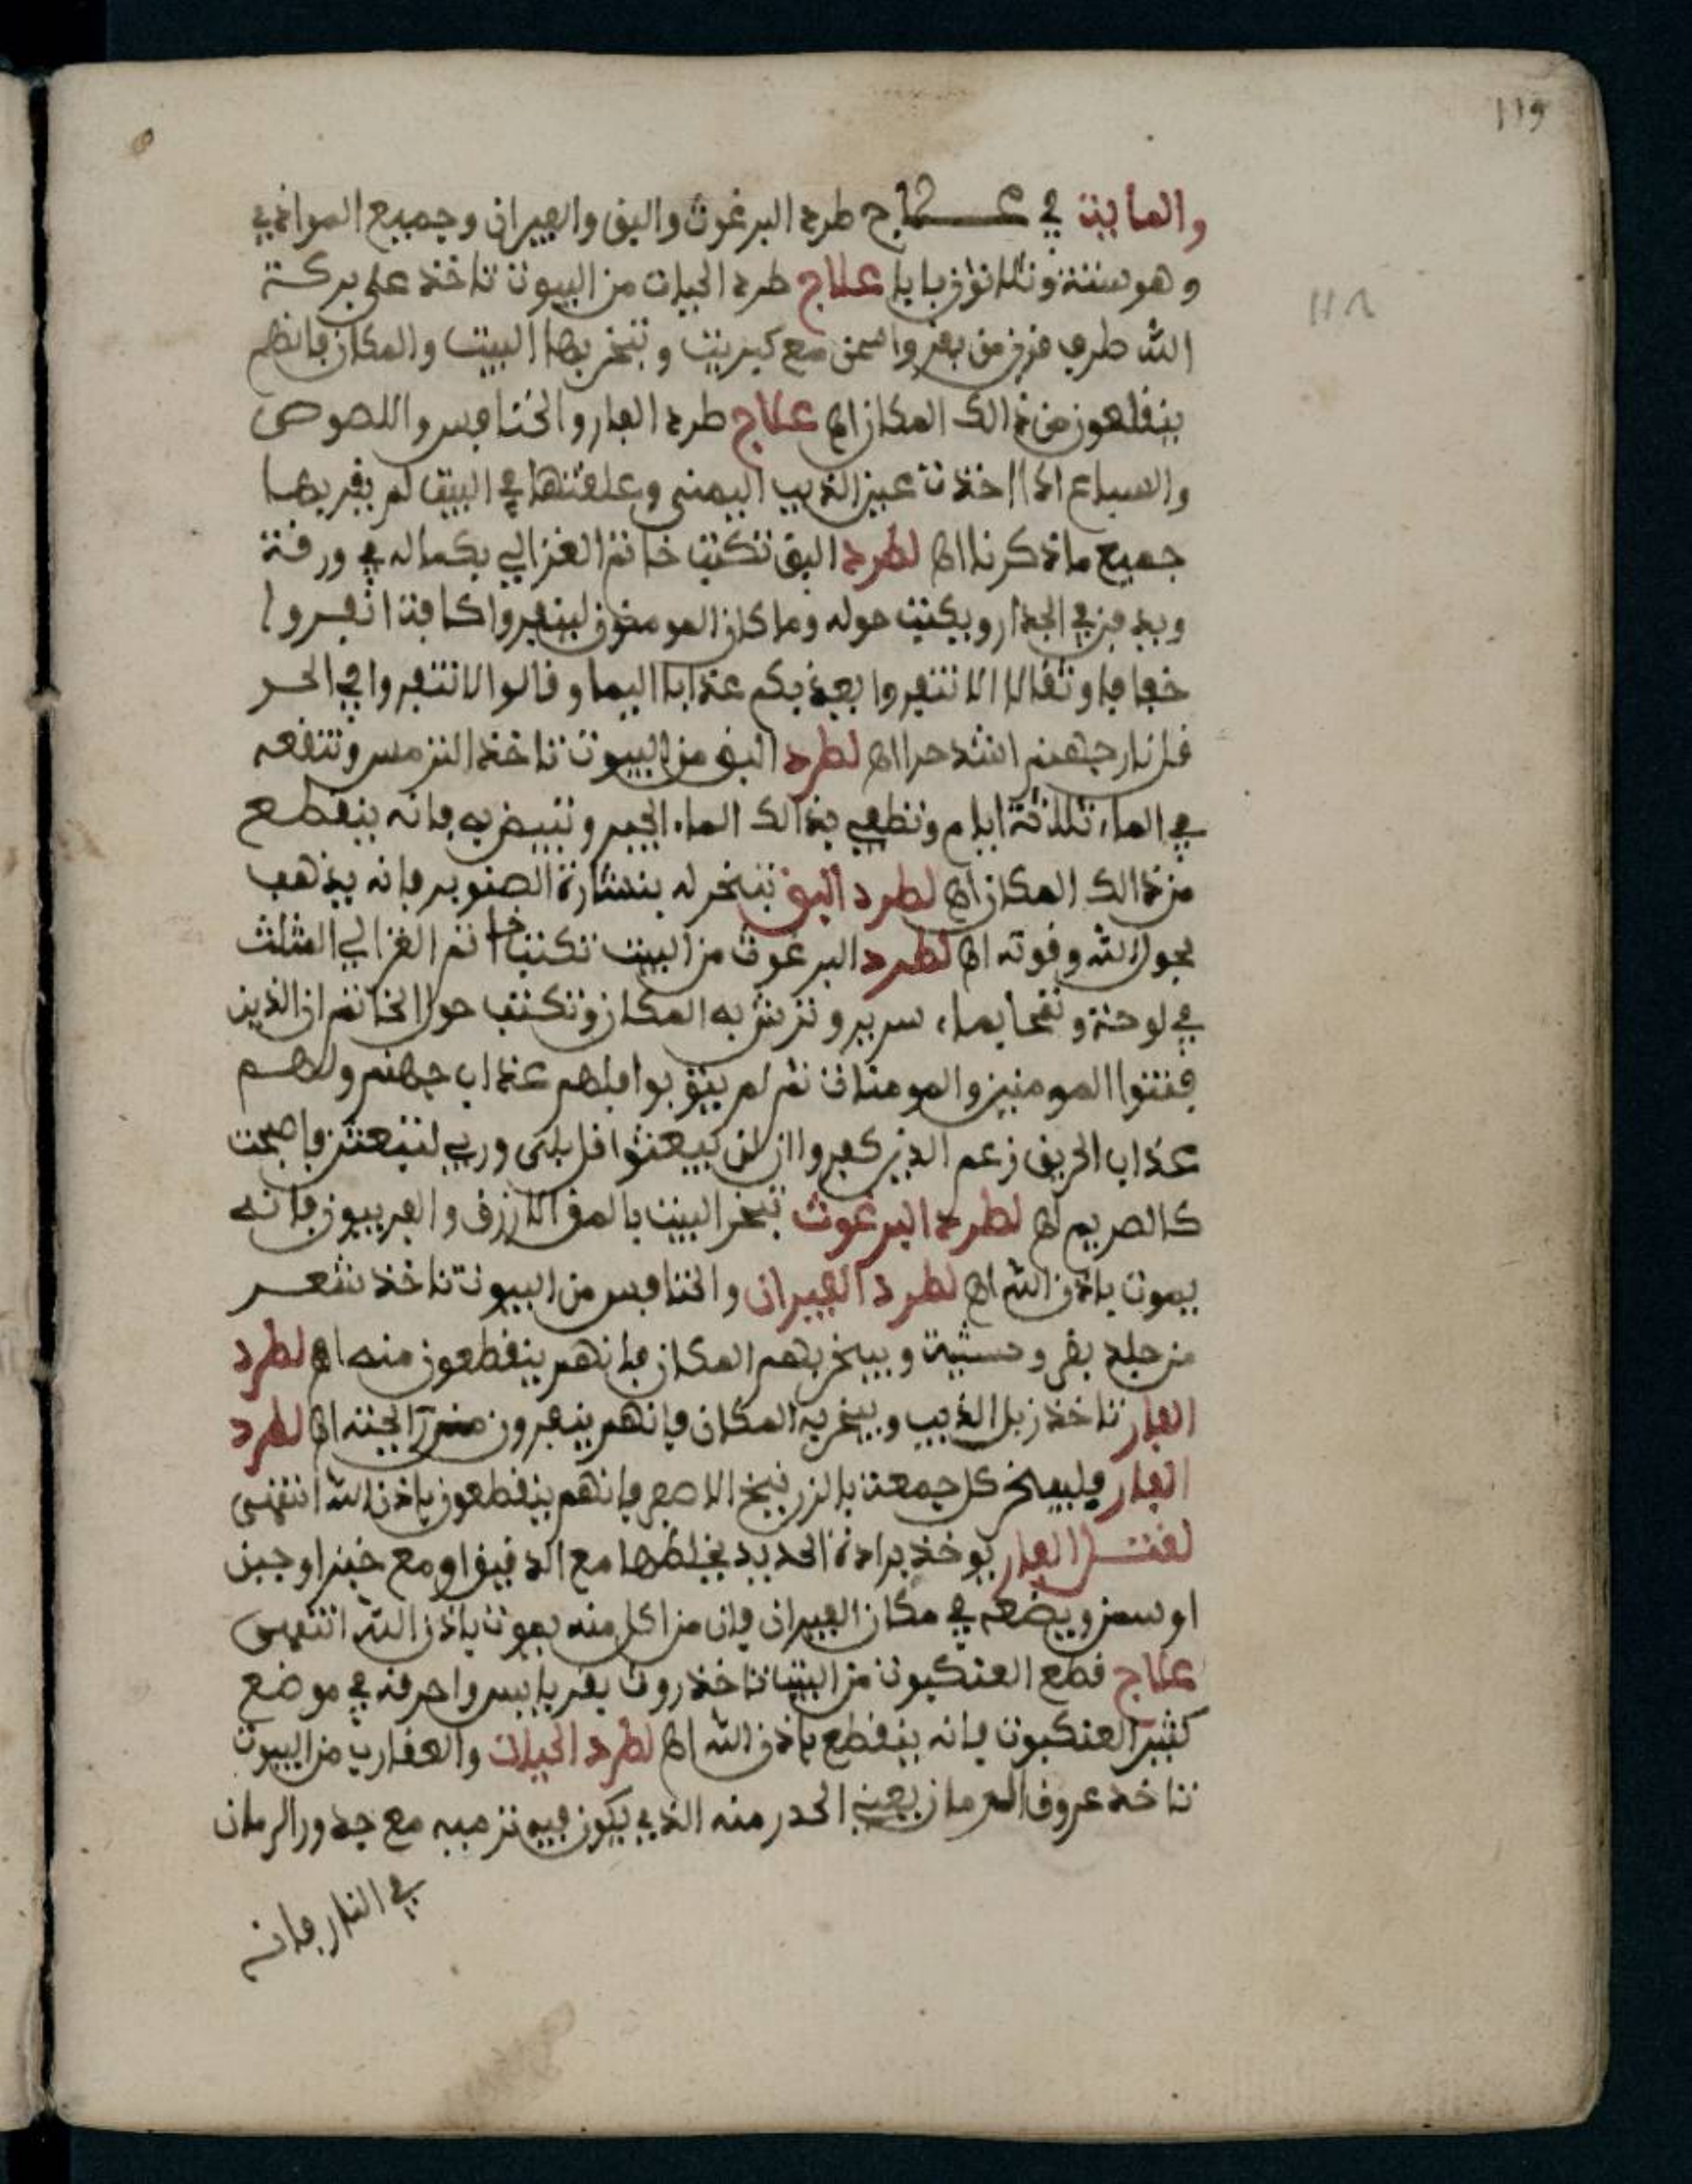 119
118
والمأية في عــلاج طرد البرغوث والبق والفيران وجميع الموانذي
وهو ستة وثلاثون بابا علاج طرد الحيات من البيوت تاخذ على بركة
الله طرف قرن من بقر واسحن مع كبريت وتبخر بها البيت والمكان فانهم
ينقلعون من ذالك المكان اه علاج طرد الفار والخنافس واللصوص
والسباع اذا اخذت عين الذيب اليمنى وعلقتها في البيت لم يقربها
جميع ما ذكرنا اه لطرد البق تكتب خاتم الغزالي بكماله في ورقة
ويدفن في الجدار ويكتب حوله وما كان المومنون لينفروا كافة انفروا
خفافا وثقالا الا تنفروا يعذبكم عذابا اليما وقالوا لا تنفروا في الحر
قل نار جهنم اشد حرا اه لطرد البق من البيوت تاخذ الترمس وتنقعه
في الماء ثلاثة ايام وتطفي بذالك الماء الجير وتبيض به فانه ينقطع
من ذالك المكان اه لطرد البق تبخر له بنشارة الصنوبر فانه يذهب
بحول الله وقوته اه لطرد البرغوث من البيت تكتب خاتم الغزالي المثلث
في لوحة وتمحا بماء سرير وترش به المكان وتكتب حول الخاتم ان الذين
فتنوا المومنين والمومنات ثم لم يتوبوا فلهم عذاب جهنم ولهم
عذاب الحريق زعم الذين كفروا ان لن يبعثوا قل بلى وربي لتبعثن فاصبحت
كالصريم اه لطرد البرغوث تبخر البيت بالمق الازرق والفربيون فانه
يموت باذن الله اه لطرد الفيران والخنافس من البيوت تاخذ شعر
من جلد بقر وحشية ويبخر بهم المكان فانهم ينقطعون منه اه لطرد
الفار تاخذ زبل الذيب ويبخر به المكان فانهم ينفرون من رآيحته اه لطرد
الفار فليبخر كل جمعة بالزرنيخ الاصفر فانهم ينقطعون باذن الله انتهى
لقتــل الفار يوخذ برادة الحديد يخلطها مع الدقيق او مع خبز او جبن
او سمن ويضعه في مكان الفيران فان من اكل منه يموت باذن الله انتهى
علاج قطع العنكبوت من البيت تاخذ روث بقر يابس واحرقه في موضع
كثير العنكبوت فانه ينقطع باذن الله اه لطرد الحيات والعقارب من البيوت
تاخذ عروق العرمان يعني الحدر منه الذي يكون فيه ترميه مع جدور الرمان
في النار فانه